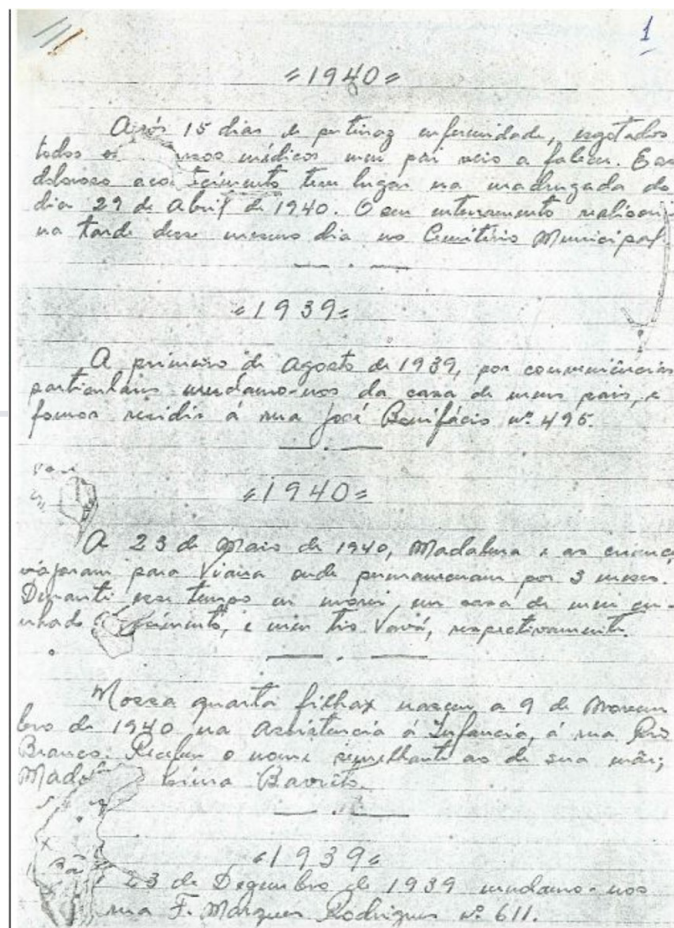 1
=1940=
Após 15 dias de pertinaz enfermidade, esgotados
todos os médicos meu pai veio a falecer. Esse
doloroso acontecimento teve lugar na madrugada do
dia 29 de Abril de 1940. O seu enterramento realizou
na tarde desse mesmo dia no Cemitério Municipal
=1939=
A primeiro de Agosto de 1939, por conveniências
particulares mudamo-nos da casa de meus pais, e
fomos residir á rua José Bonifácio nº 495.
=1940=
A 23 de Maio de 1940, Madalena e as crianças
viajaram para Viana onde permaneceram por 3 meses.
Durante esse tempo eu morei em casa de meu cu-
nhado e meu tio Vavá, respectivamente.
Nossa quarta filha nasceu a 9 de Novem
bro de 1940 na Assistencia á Infancia, á rua
Branco. Recebeu o nome semelhante ao de sua mãe;
Mada
=1939=
23 de Dezembro de 1939 mudamo-nos
rua F. Marques Rodrigues nº 611.